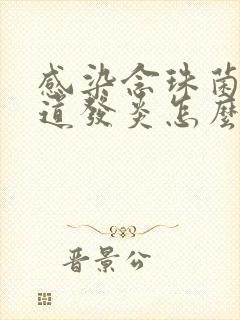 感染念珠菌
道發炎怎麼
晋景公